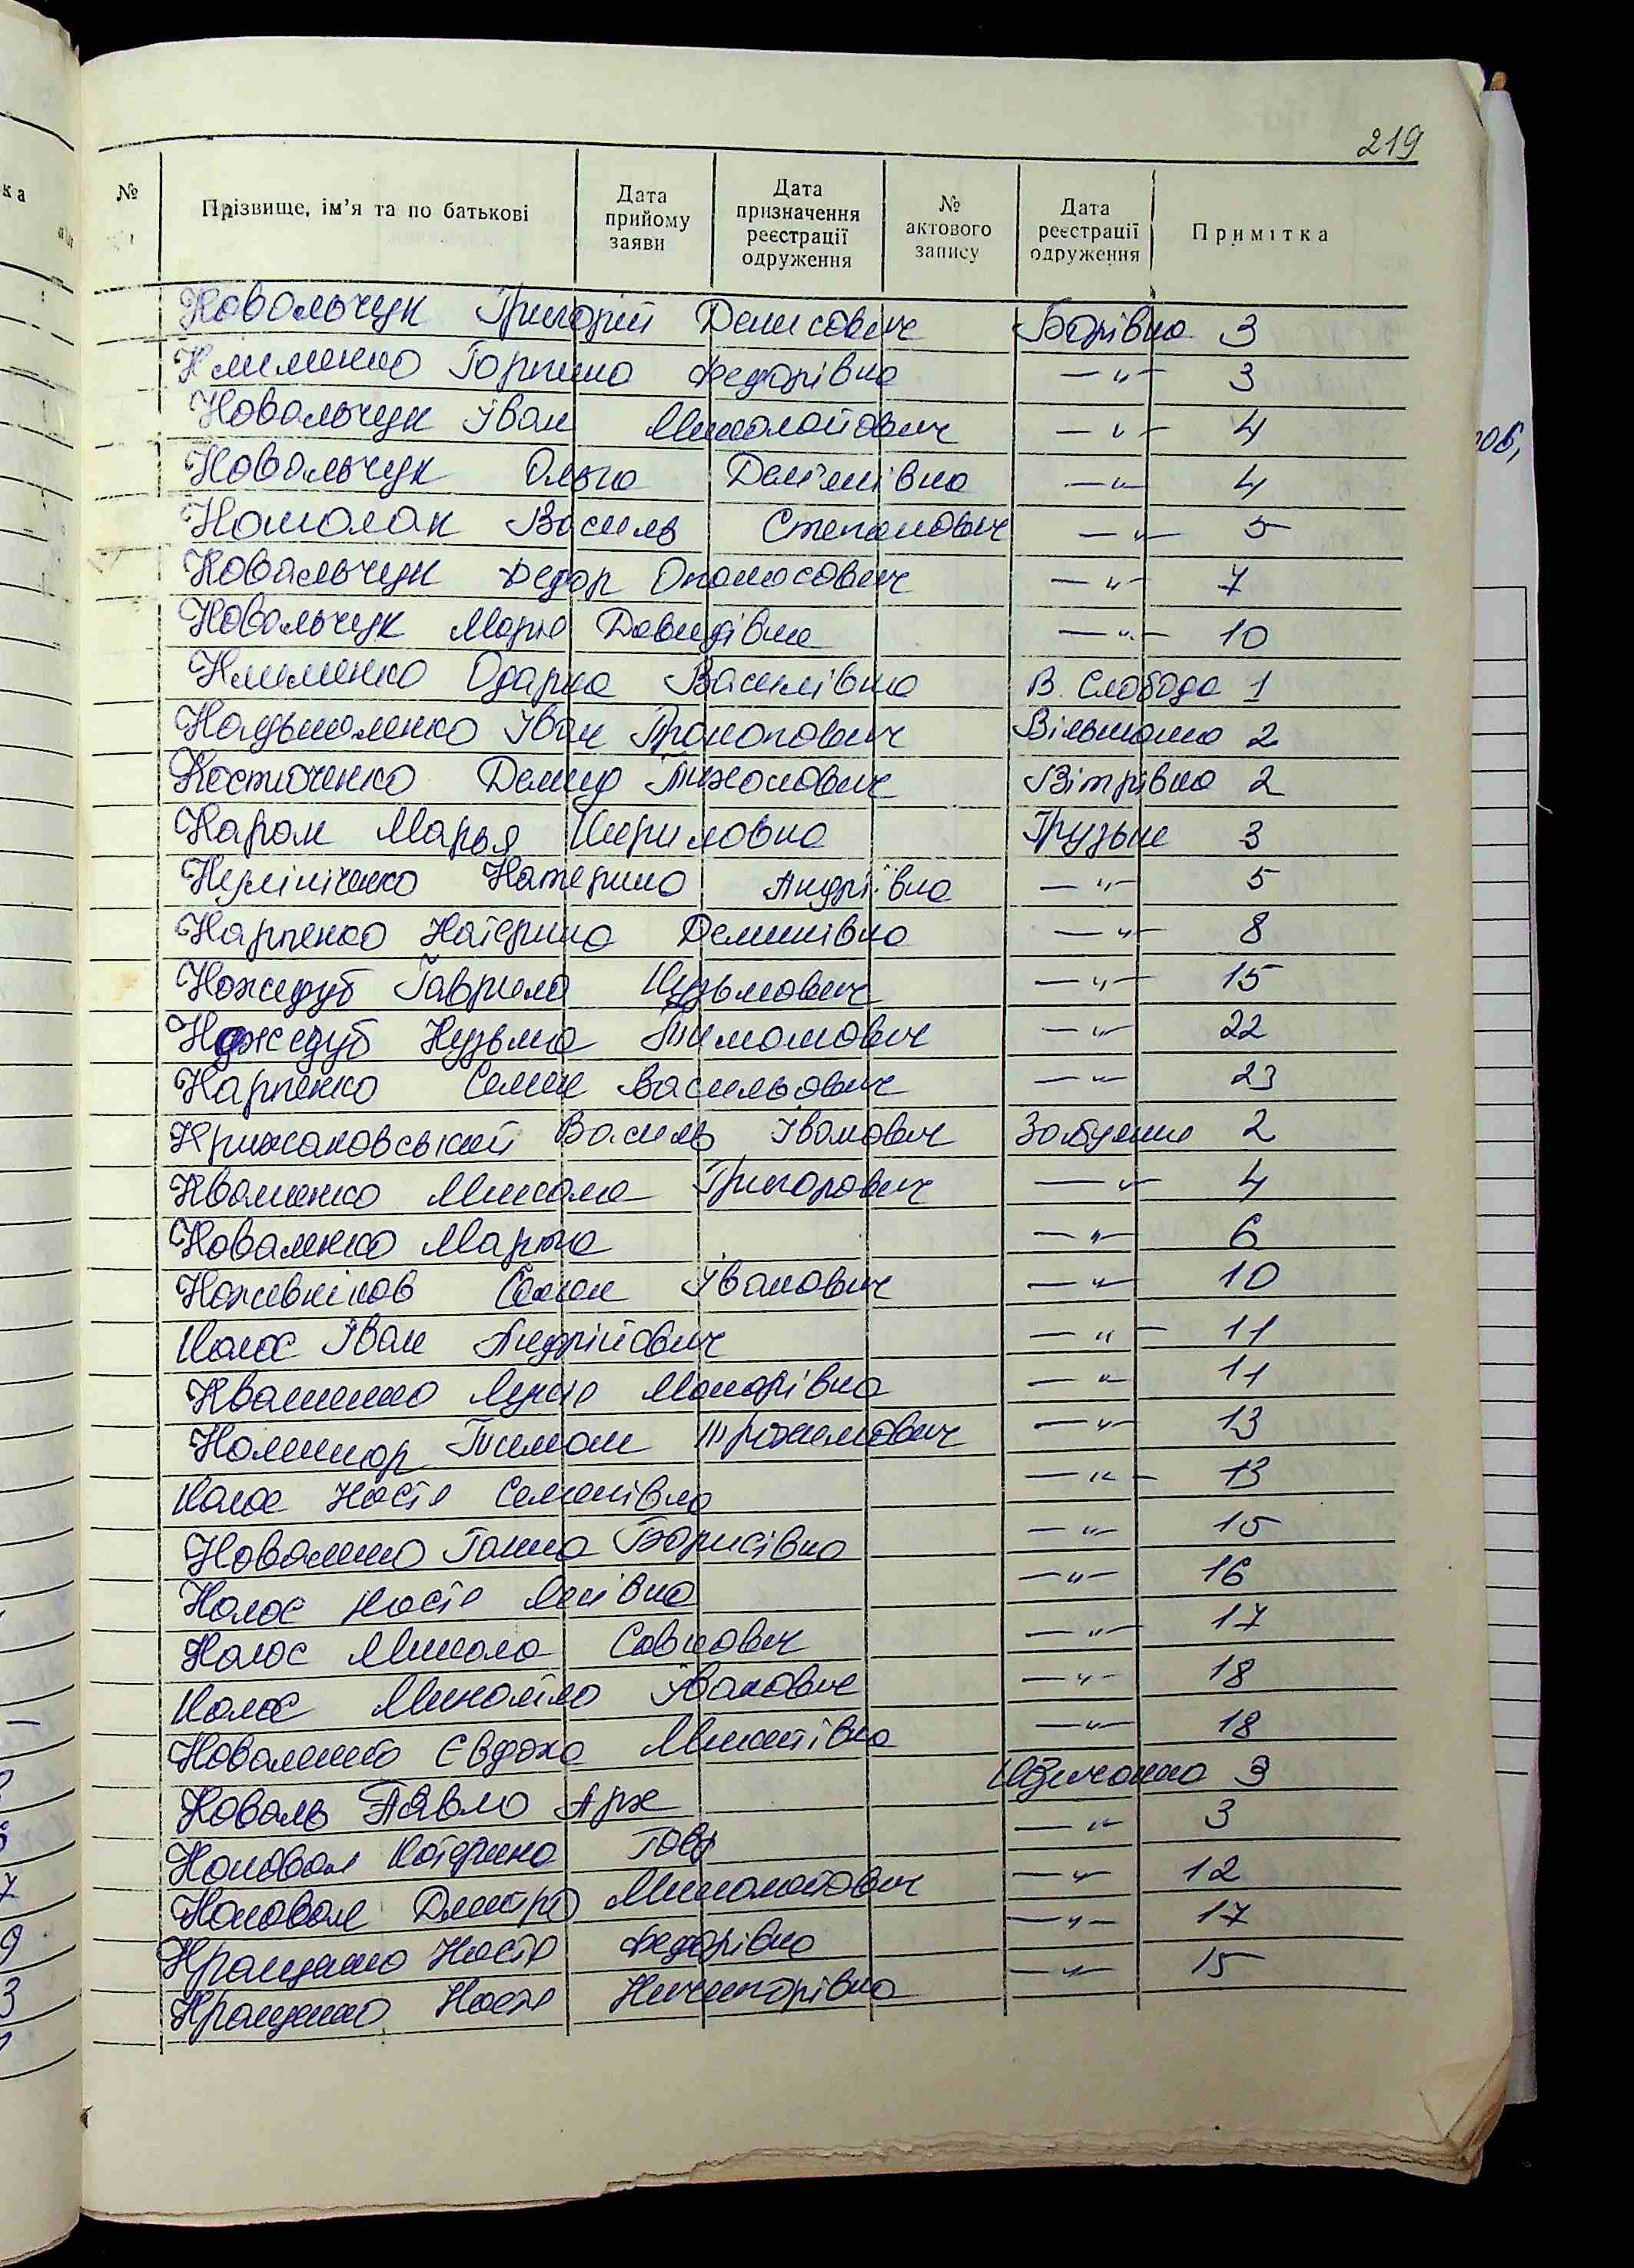 219
№ Прізвище, ім'я та по батькові Дата прийому заяви Дата призначення реєстрації одруження № актового запису Дата реєстрації одруження Примітка
Ковальчук Григорій Денисович Борівка 3
Клименко Горпина Федорівна —„— 3
Ковальчук Іван Миколайович —„— 4
Ковальчук Ольга Дем'янівна —„— 4
Василь Степанович —„— 5
Ковальчук Федор Опанасович —„— 7
Ковальчук Марія Давидівна —„— 10
Клименко Одарка Василівна В. Слобода 1
Іван Прокопович 2
Костюченко Демид Тихонович Вітрівка 2
Карам Марья Кириловна Грузьке 3
Катерина Андріївна —„— 5
Карпенко Катерина —„— 8
Кожедуб Гаврило Кузьмович —„— 15
Кожедуб Кузьма Тимонович —„— 22
Карпенко Семен Васильович —„— 23
Крижановський Василь Іванович Забуянне 2
Кваменко Микола Григорович —„— 4
Коваленко Марта —„— 6
Кожевніков Семен Іванович —„— 10
Колос Іван Андрійович —„— 11
Макарівна —„— 11
Тимош —„— 13
Колос Настя Семенівна —„— 13
Ганна Борисівна —„— 15
Колос Настя —„— 16
Колос Микола Савкович —„— 17
Колос Михайло Іванович —„— 18
Євдоха Микитівна —„— 18
Коваль Павло Арх Кодычанка 3
Коновал Катерина Гавр —„— 3
Коновал Дмитро Миколайович —„— 12
Настя Федорівна —„— 17
Настя Ничипорівна —„— 15